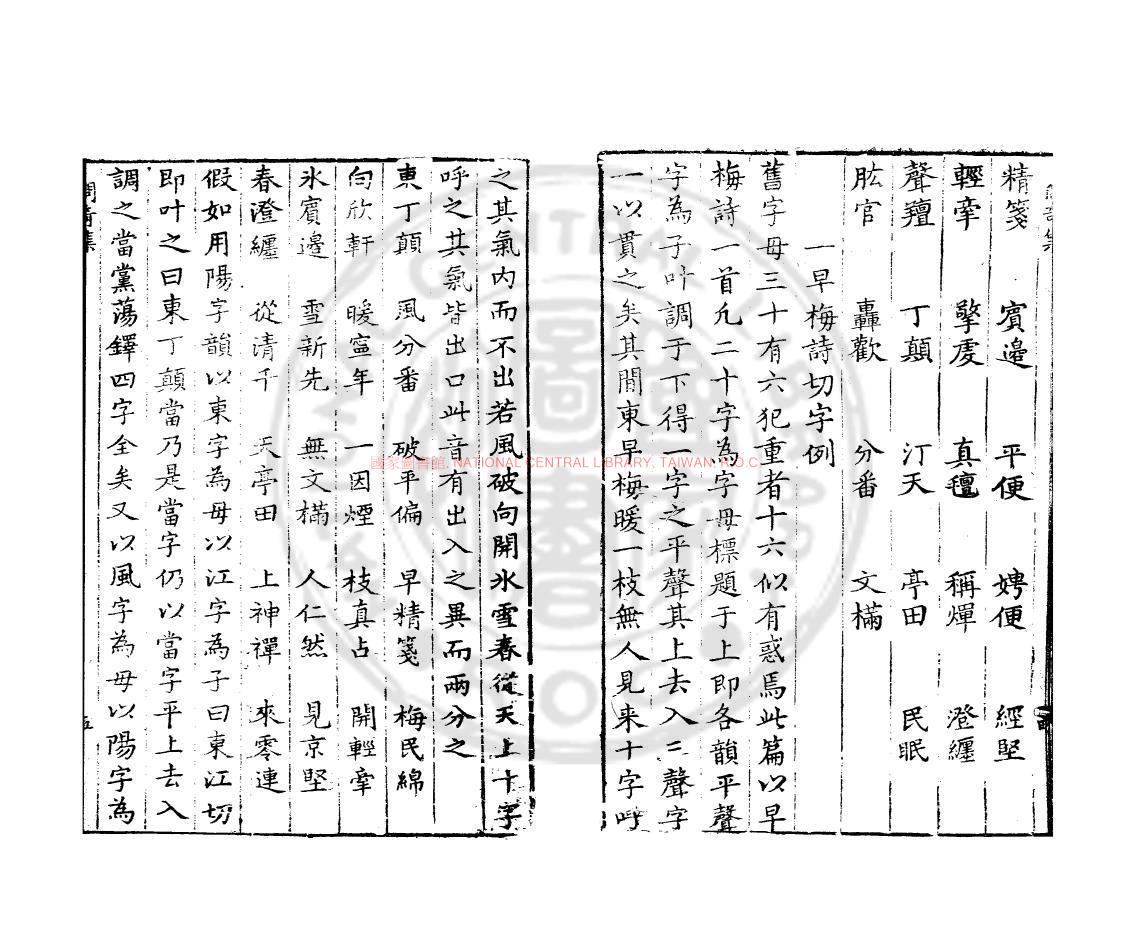 精箋　賓邉　平便　娉便　經堅
輕牽　擎虔　真氊　稱燀　澄纏
聲羶　丁顛　汀天　亭田　民眠
肱官　轟歡　分番　文樠
一早梅詩切字例
舊字母三十有六犯重者十六似有惑焉此篇以早
梅詩一首凢二十字為字母標題于上即各韻平聲
字為子叶調于下得一字之平聲其上去入三聲字
一以貫之矣其間東早梅暖一枝無人見来十字呼
之其氣內而不出若風破向開氷雪春從天上十字
呼之其氣皆出口此音有出入之異而兩分之
東丁顛　風分番　破平偏　早精箋　梅民綿
向欣軒　暖寧年　一因煙　枝真占　開輕牽
氷賓邉　雪新先　無文樠　人仁然　見京堅
春澄纏　從清千　天亭田　上神禪　來零連
假如用陽字韻以東字為母以江字為子曰東江切
即叶之曰東丁顛當乃是當字仍以當字平上去入
調之當黨蕩鐸四字全矣又以風字為母以陽字為
五
國家圖書館, NATIONAL CENTRAL LIBRARY, TAIWAN R.O.C